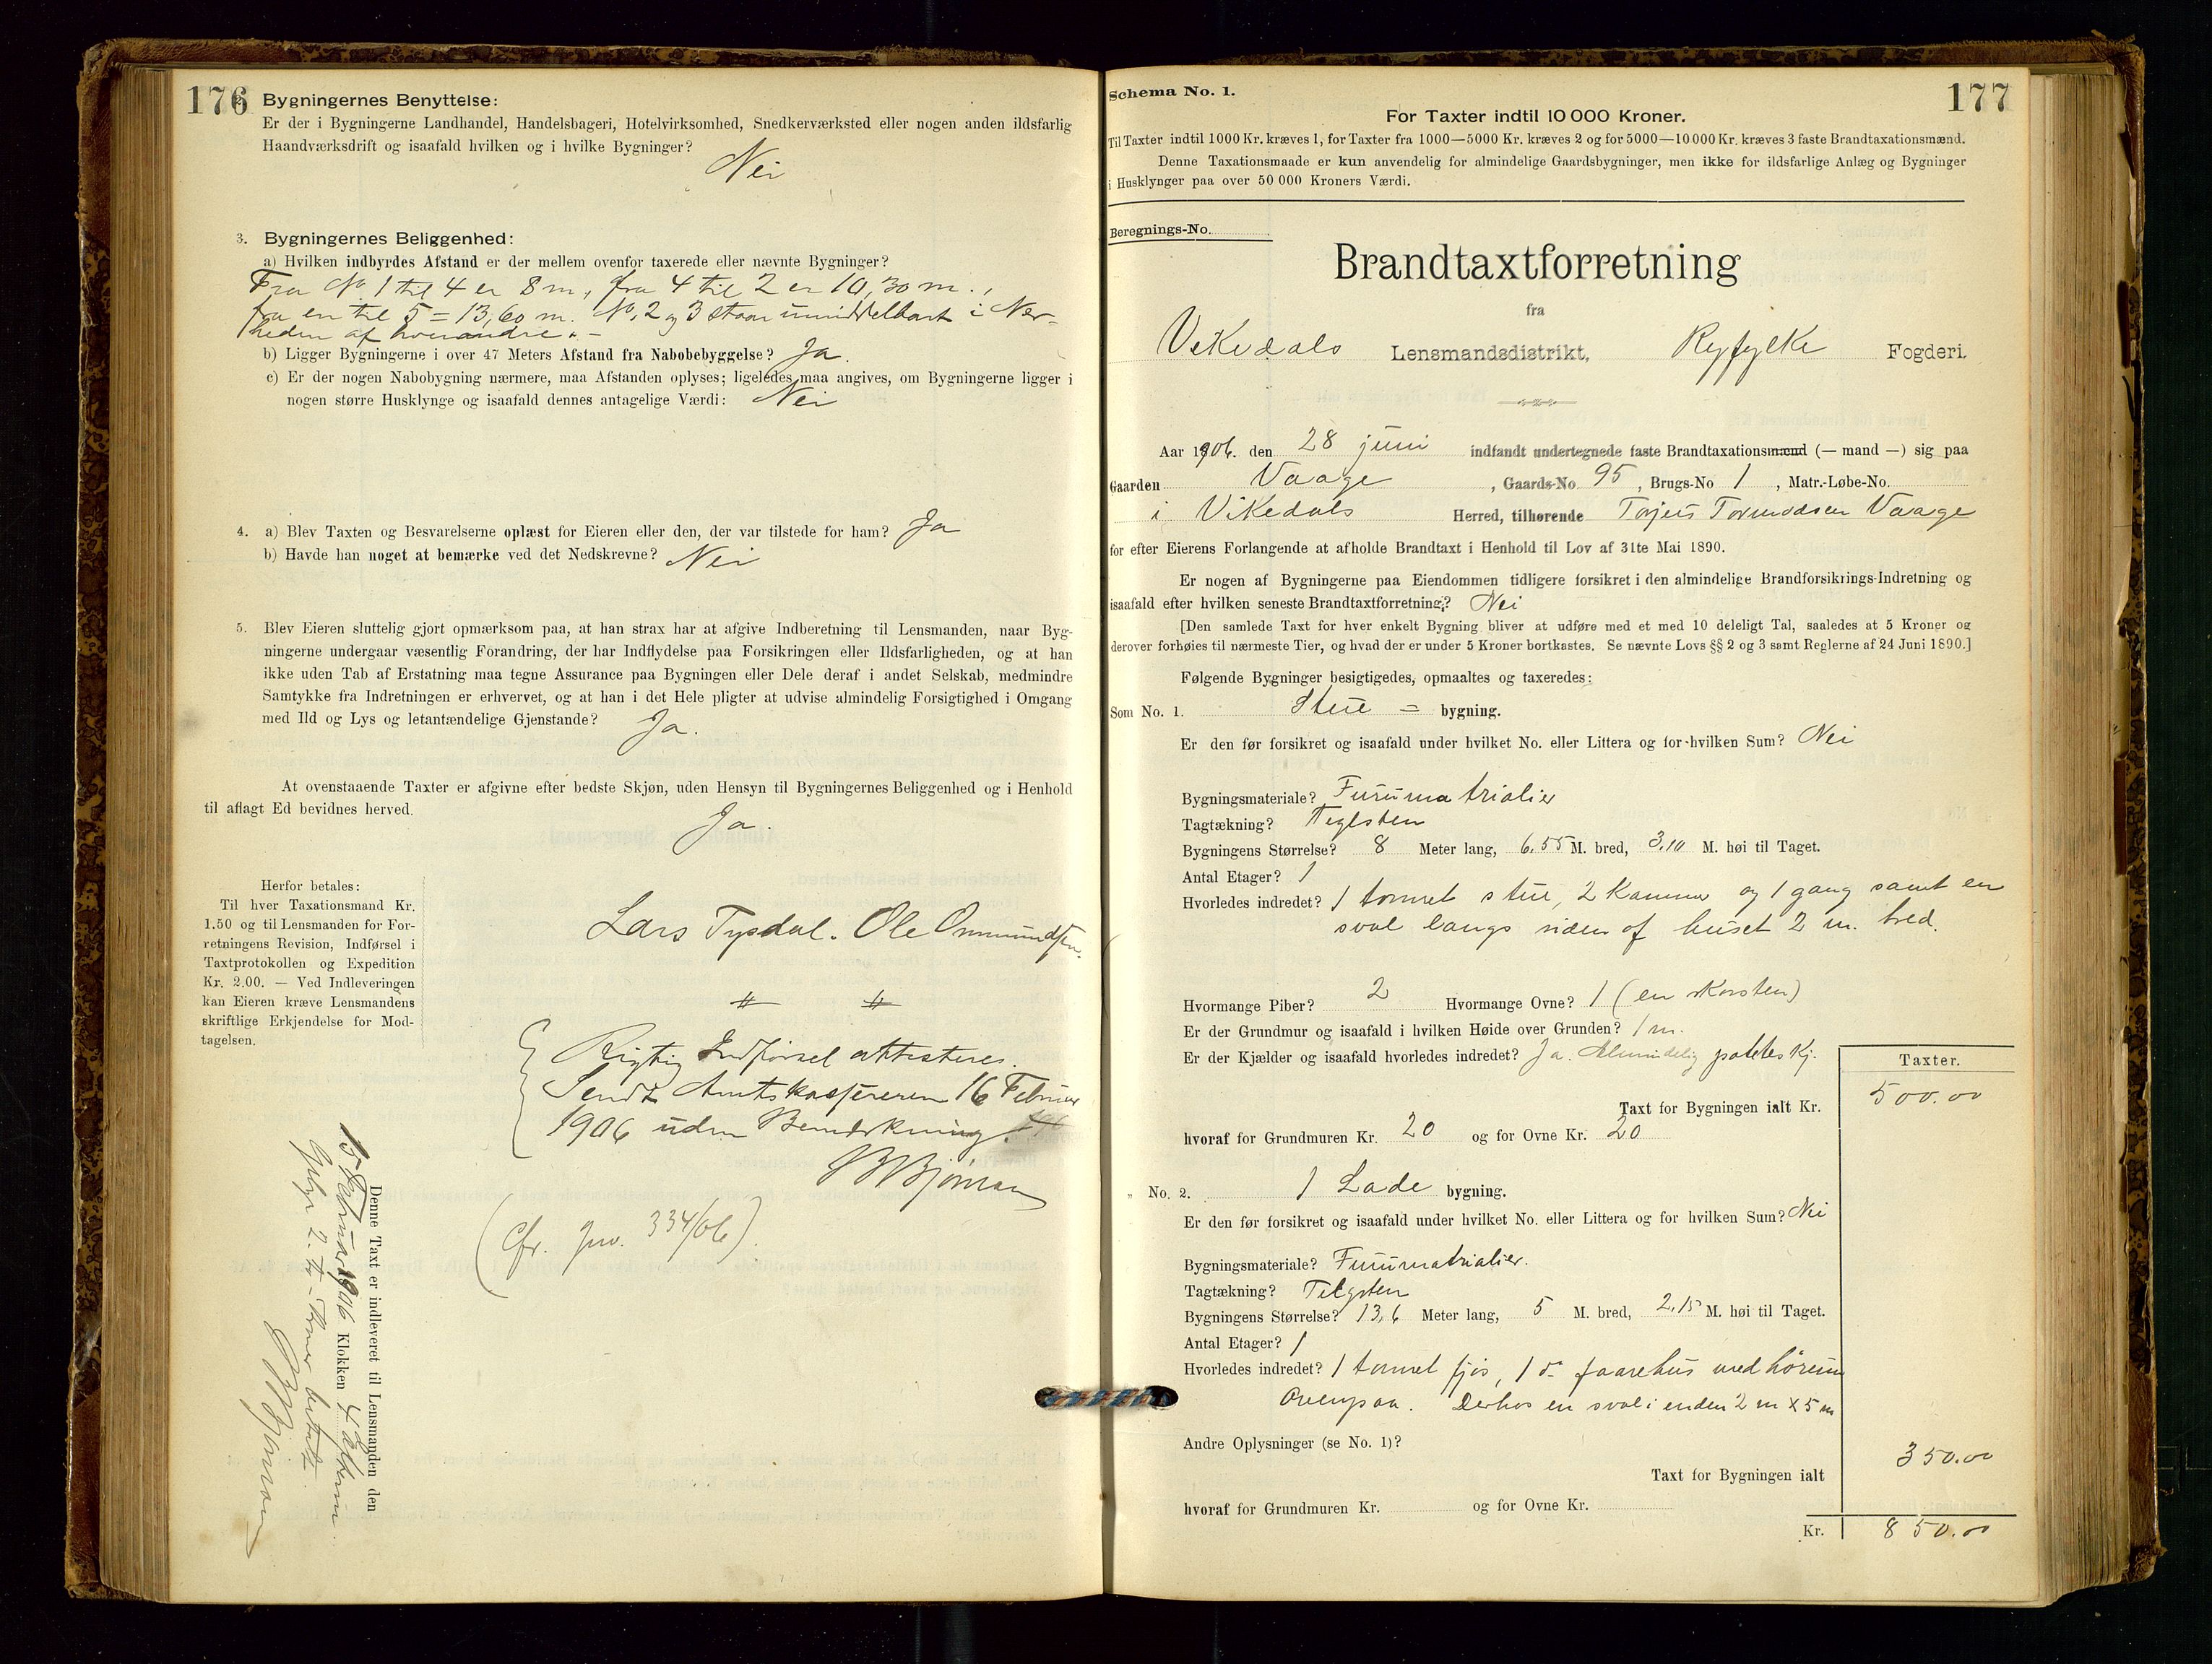 176
2. Bygningernes Benyttelse:
Er der i Bygningerne Landhandel, Handelsbageri, Hotelvirksomhed, Snedkerværksted eller nogen anden ildsfarlig
Haandværksdrift og isaafald hvilken og i hvilke Bygninger?
Nei
3. Bygningernes Beliggenhed:
a) Hvilken indbyrdes Afstand er der mellem ovenfor taxerede eller nævnte Bygninger?
Fra No 1 til 4 er 8 m, fra 4 til 2 er 10,30 m.,
fra en til 5 = 13,60 m. No. 2 og 3 staar umiddelbart i Nær-
heden af hverandre. -
b) Ligger Bygningerne i over 47 Meters Afstand fra Nabobebyggelse? Ja.
c) Er der nogen Nabobygning nærmere, maa Afstanden oplyses; ligeledes maa angives, om Bygningerne ligger i
nogen større Husklynge og isaafald dennes antagelige Værdi: Nei
4. a) Blev Taxten og Besvarelserne oplæst for Eieren eller den, der var tilstede for ham? Ja
b) Havde han noget at bemærke ved det Nedskrevne? Nei
5. Blev Eieren sluttelig gjort opmærksom paa, at han strax har at afgive Indberetning til Lensmanden, naar Byg-
ningerne undergaar væsentlig Forandring, der har Indflydelse paa Forsikringen eller Ildsfarligheden, og at han
ikke uden Tab af Erstatning maa tegne Assurance paa Bygningen eller Dele deraf i andet Selskab, medmindre
Samtykke fra Indretningen er erhvervet, og at han i det Hele pligter at udvise almindelig Forsigtighed i Omgang
med Ild og Lys og letantændelige Gjenstande? Ja.
At ovenstaaende Taxter er afgivne efter bedste Skjøn, uden Hensyn til Bygningernes Beliggenhed og i Henhold
til aflagt Ed bevidnes herved.
Ja.
Herfor betales:
Til hver Taxationsmand Kr.
1.50 og til Lensmanden for For-
retningens Revision, Indførsel i
Taxtprotokollen og Expedition
Kr. 2.00. — Ved Indleveringen
kan Eieren kræve Lensmandens
skriftlige Erkjendelse for Mod-
tagelsen.
Lars Tysdal. Ole Ommundsen.
Rigtig Indførsel attesteres.
Sendt Amtskassereren 16 Februar
1906 uden Bemærkning.
(Cfr. Jnr. 334/06).
Denne Taxt er indleveret til Lensmanden den
15 Februar 1906 Klokken 4
177
Schema No. 1.
For Taxter indtil 10 000 Kroner.
Til Taxter indtil 1000 Kr. kræves 1, for Taxter fra 1000—5000 Kr. kræves 2 og for 5000—10 000 Kr. kræves 3 faste Brandtaxationsmænd.
Denne Taxationsmaade er kun anvendelig for almindelige Gaardsbygninger, men ikke for ildsfarlige Anlæg og Bygninger
i Husklynger paa over 50 000 Kroners Værdi.
Beregnings-No.
Brandtaxtforretning
fra
Vikedals Lensmandsdistrikt, Ryfylke Fogderi.
Aar 1906. den 28 juni indfandt undertegnede faste Brandtaxationsmænd (— mand —) sig paa
Gaarden Vaage, Gaards-No. 95, Brugs-No 1, Matr.-Løbe-No.
i Vikedals Herred, tilhørende Torjeis Tormodsen Vaage
for efter Eierens Forlangende at afholde Brandtaxt i Henhold til Lov af 31te Mai 1890.
Er nogen af Bygningerne paa Eiendommen tidligere forsikret i den almindelige Brandforsikrings-Indretning og
isaafald efter hvilken seneste Brandtaxtforretning? Nei
[Den samlede Taxt for hver enkelt Bygning bliver at udføre med et med 10 deleligt Tal, saaledes at 5 Kroner og
derover forhøies til nærmeste Tier, og hvad der er under 5 Kroner bortkastes. Se nævnte Lovs §§ 2 og 3 samt Reglerne af 24 Juni 1890.]
Følgende Bygninger besigtigedes, opmaaltes og taxeredes:
Som No. 1. Stue = bygning.
Er den før forsikret og isaafald under hvilket No. eller Littera og for hvilken Sum? Nei
Bygningsmateriale? Furumatrialier
Tagtækning? Teglsten
Bygningens Størrelse? 8 Meter lang, 6.55 M. bred, 3.10 M. høi til Taget.
Antal Etager? 1
Hvorledes indredet? 1 tømret stue, 2 kammer og 1 gang samt en
sval langs siden af huset 2 m. bred.
Hvormange Piber? 2 Hvormange Ovne? 1 (en skorsten)
Er der Grundmur og isaafald i hvilken Høide over Grunden? 1 m.
Er der Kjælder og isaafald hvorledes indredet? Ja. Almindelig potetes kj.
Taxter.
Taxt for Bygningen ialt Kr. 500.00
hvoraf for Grundmuren Kr. 20 og for Ovne Kr. 20
" No. 2. 1 Lade bygning.
Er den før forsikret og isaafald under hvilket No. eller Littera og for hvilken Sum? Nei
Bygningsmateriale? Furumatrialier.
Tagtækning? Telgsten
Bygningens Størrelse? 13,6 Meter lang, 5 M. bred, 2.15 M. høi til Taget.
Antal Etager? 1
Hvorledes indredet? 1 tømret fjøs, 1 do faarehus med hørum
ovenpaa. Derhos en sval i enden 2 m x 5 m
Andre Oplysninger (se No. 1)?
Taxt for Bygningen ialt 350.00
hvoraf for Grundmuren Kr. og for Ovne Kr.
Kr. 850.00